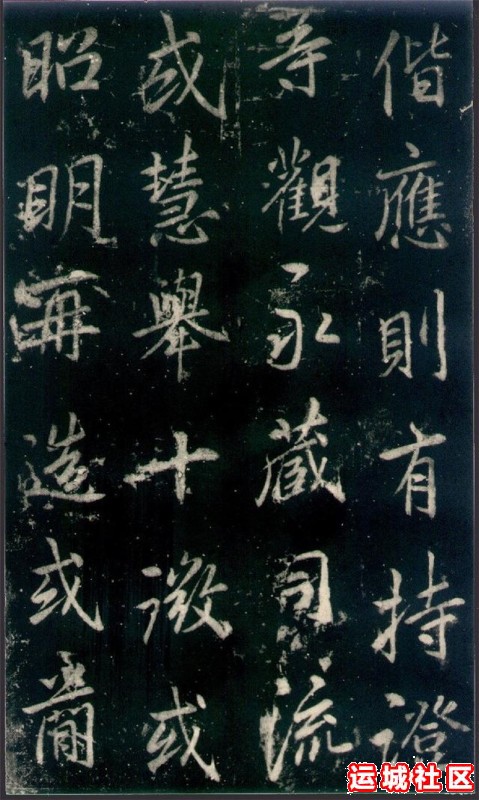 偕應則有持證
等觀永藏司流
或慧舉十徵或
昭明再造或蕭
运城社区